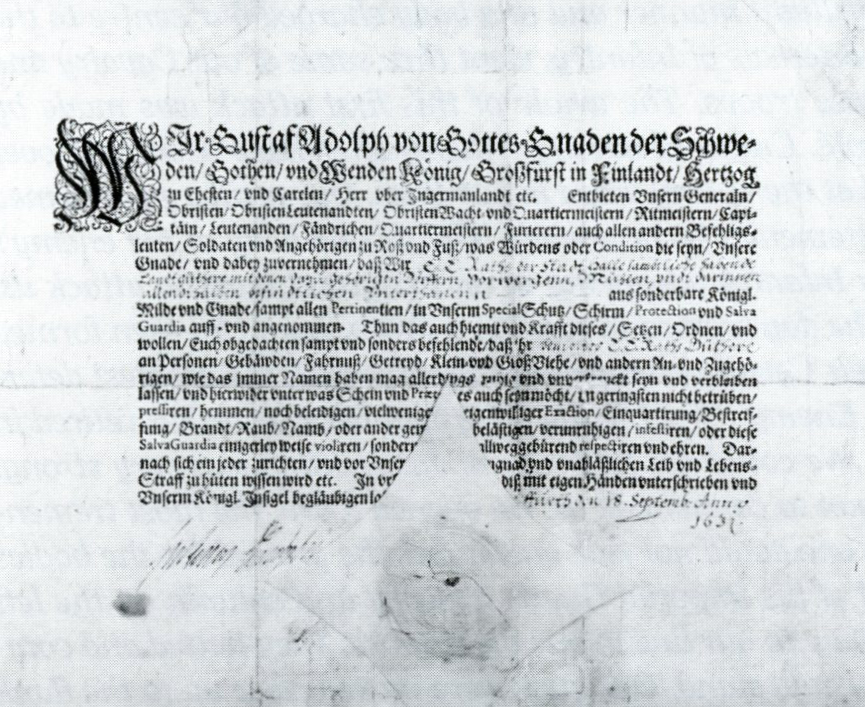 WIr Gustaf Adolph von Gottes Gnaden der Schwe-
den/ Gothen/ vnd Wenden König/ Großfürst in Finlandt/ Hertzog
zu Ehesten/ vnd Carelen/ Herr vber Ingermanlandt etc. Entbieten Vnsern Generaln/
Obristen/ Obristen Leutenandten/ Obristen Wacht- vnd Quartiermeistern/ Ritmeistern/ Capi-
täin/ Leutenanden/ Fändrichen/ Quartiermeistern/ Furierern/ auch allen andern Befehligs-
leuten/ Soldaten vnd Angehörigen zu Roß vnd Fuß/ was Würdens oder Condition die seyn/ Vnsere
Gnade/ vnd dabey zuvernehmen/ daß Wir E. E. Raths der Stadt Halle
aus sonderbare Königl.
Milde vnd Gnade/ sampt allen Pertinentien/ in Vnserm Special Schutz/ Schirm/ Protection vnd Salva
Guardia auff- vnd angenommen. Thun das auch hiemit vnd Krafft dieses/ Setzen/ Ordnen/ vnd
wollen/ Euch obgedachten sampt vnd sonders befehlende/ daß ihr E. E. Raths Güthere
an Personen/ Gebäwden/ Fahrnuß/ Getreyd/ Klein- vnd Groß Viehe/ vnd andern An- vnd Zugehö-
rigen/ wie das immer Namen haben mag allerdings vnd seyn vnd verbleiben
lassen/ vnd hierwider vnter was Schein vnd es auch seyn möcht/ im geringsten nicht betrüben/
pressiren/ hemmen/ noch beleidigen/ vielwenige eigenwilliger Exaction/ Einquartirung/ Bestreif-
fung/ Brandt/ Raub/ Namb/ oder ander belästigen/ verunruhigen/ infestiren/ oder diese
Salva Guardia einigerley weise violiren/ sondern allweg gebürend respectiren vnd ehren. Dar-
nach sich ein jeder zurichten/ vnd vor Vnser vngnad vnd vnabläßlichen Leib vnd Lebens-
Straff zu hüten wissen wird etc. In diß mit eigen Händen unterschrieben vnd
Vnserm Königl. Insigel begläubigen den 18. Septemb. Anno
1631.